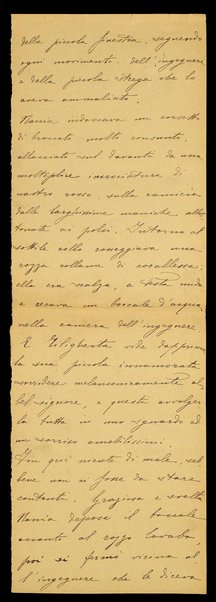 della piccola finestra, seguendo
ogni movimento dell'ingegnere
e della piccola strega che lo
aveva ammaliato.
Nania indossava un corsetto
di broccato molto consunto,
allacciato sul davanti da una
moltiplice incrociatura di
nastro rosso, sulla camicia
dalle larghissime maniche abbot
tonate ai polsi. Intorno al
sottile collo rosseggiava una
rozza collana di corallessa;
ella era scalza, a testa nuda
e recava un boccale d'acqua
nella camera dell'ingegnere.
E Efigberto vide dapprima
la sua piccola innamorata
sorridere melanconicamente al
bel signore, e questi avvolger
la tutta in uno sguardo ed
un sorriso amabilissimi.
Fin qui niente di male, seb
bene non ci fosse da stare
contenti. Graziosa e svelta
Nania depose il boccale
accanto al rozzo lavabo,
poi si fermò vicina al
l'ingegnere che le diceva